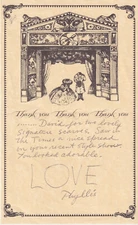 Thank you Thank you Thank you
David, for two lovely
Signature scarves. Saw in
the Times a
on your recent Style show.
You looked adorable.
LOVE
Phyllis